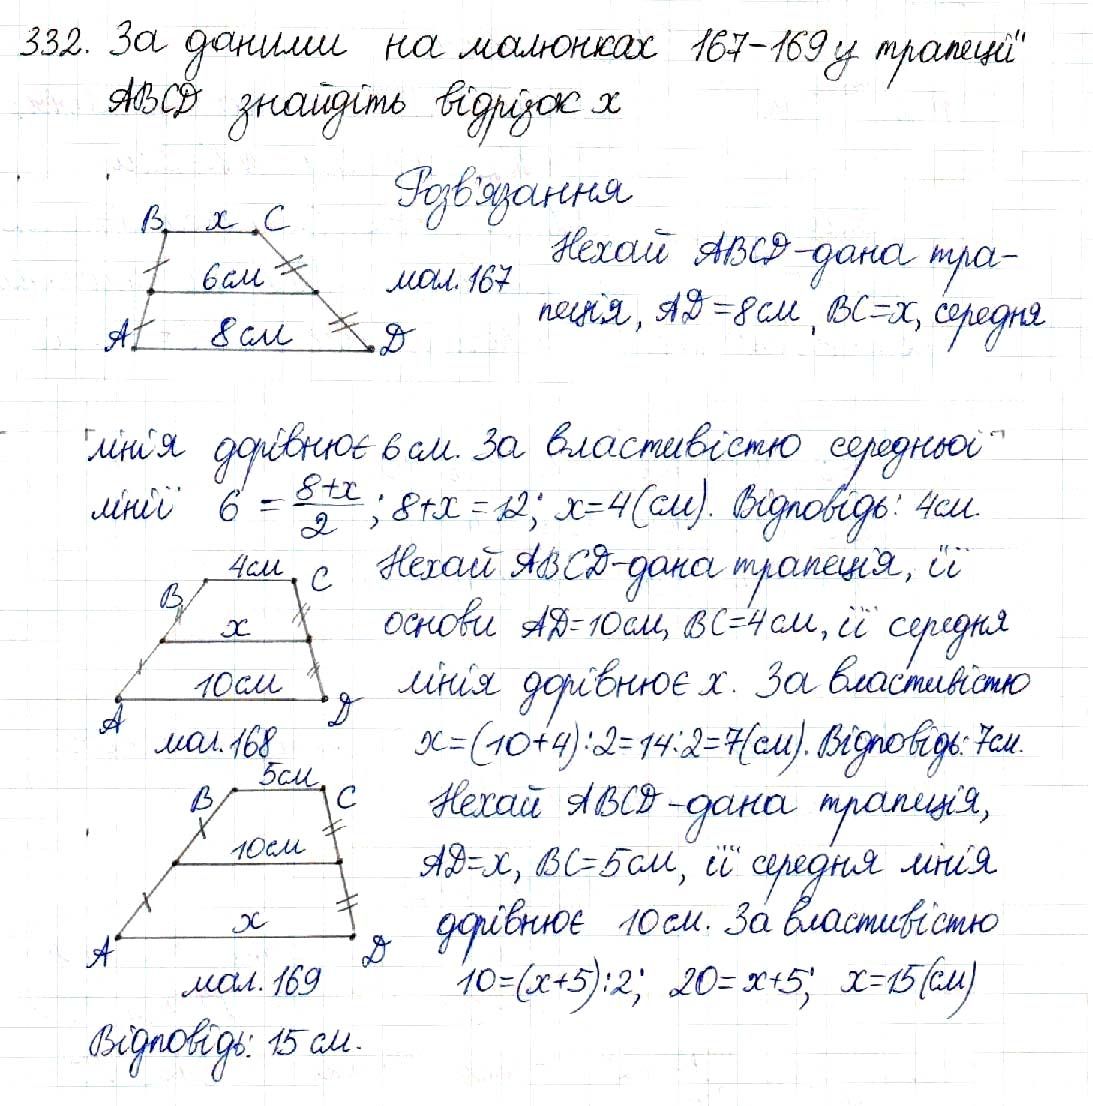 332. За даними на малюнках 167-169 у трапеції
ABCD знайдіть відрізок x
Розв'язання
B x C
6см
A 8см D
мал. 167
Нехай ABCD-дана тра-
пеція, AD=8см, BC=x, середня
лінія дорівнює 6см. За властивістю середньої
лінії 6 = (8+x)/2; 8+x=12; x=4(см). Відповідь: 4см.
B 4см C
x
A 10см D
мал. 168
Нехай ABCD-дана трапеція, її
основи AD=10см, BC=4см, її середня
лінія дорівнює x. За властивістю
x=(10+4):2=14:2=7(см). Відповідь: 7см.
B 5см C
10см
A x D
мал. 169
Нехай ABCD-дана трапеція,
AD=x, BC=5см, її середня лінія
дорівнює 10см. За властивістю
10=(x+5):2; 20=x+5; x=15(см)
Відповідь: 15см.